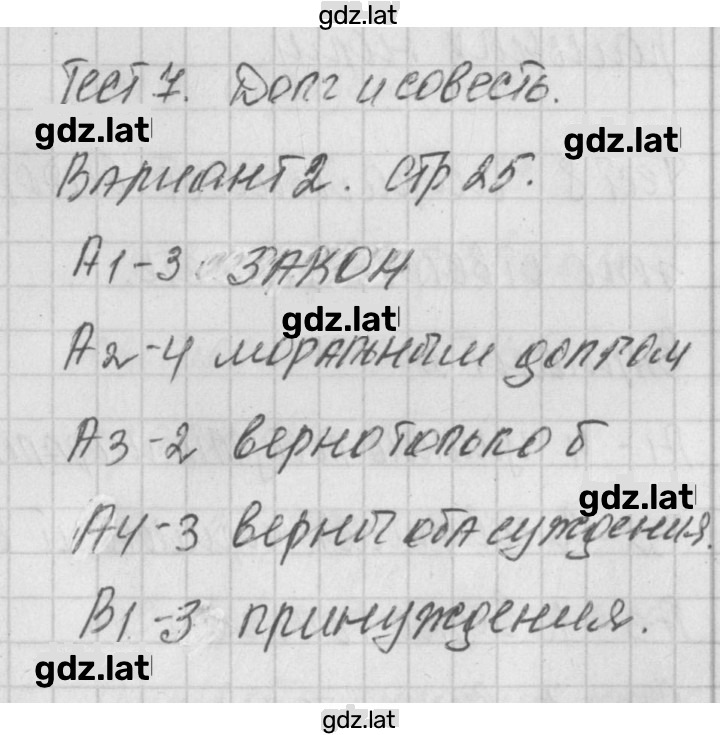 gdz.lat
Тест 7. Долг и совесть.
gdz.lat
gdz.lat
Вариант 2. стр 25.
А1-3 закон
gdz.lat
А2-4 моральным долгом
А3-2 верно только б
gdz.lat
А4-3 верны оба суждения.
В1-3 принуждения.
gdz.lat
gdz.lat